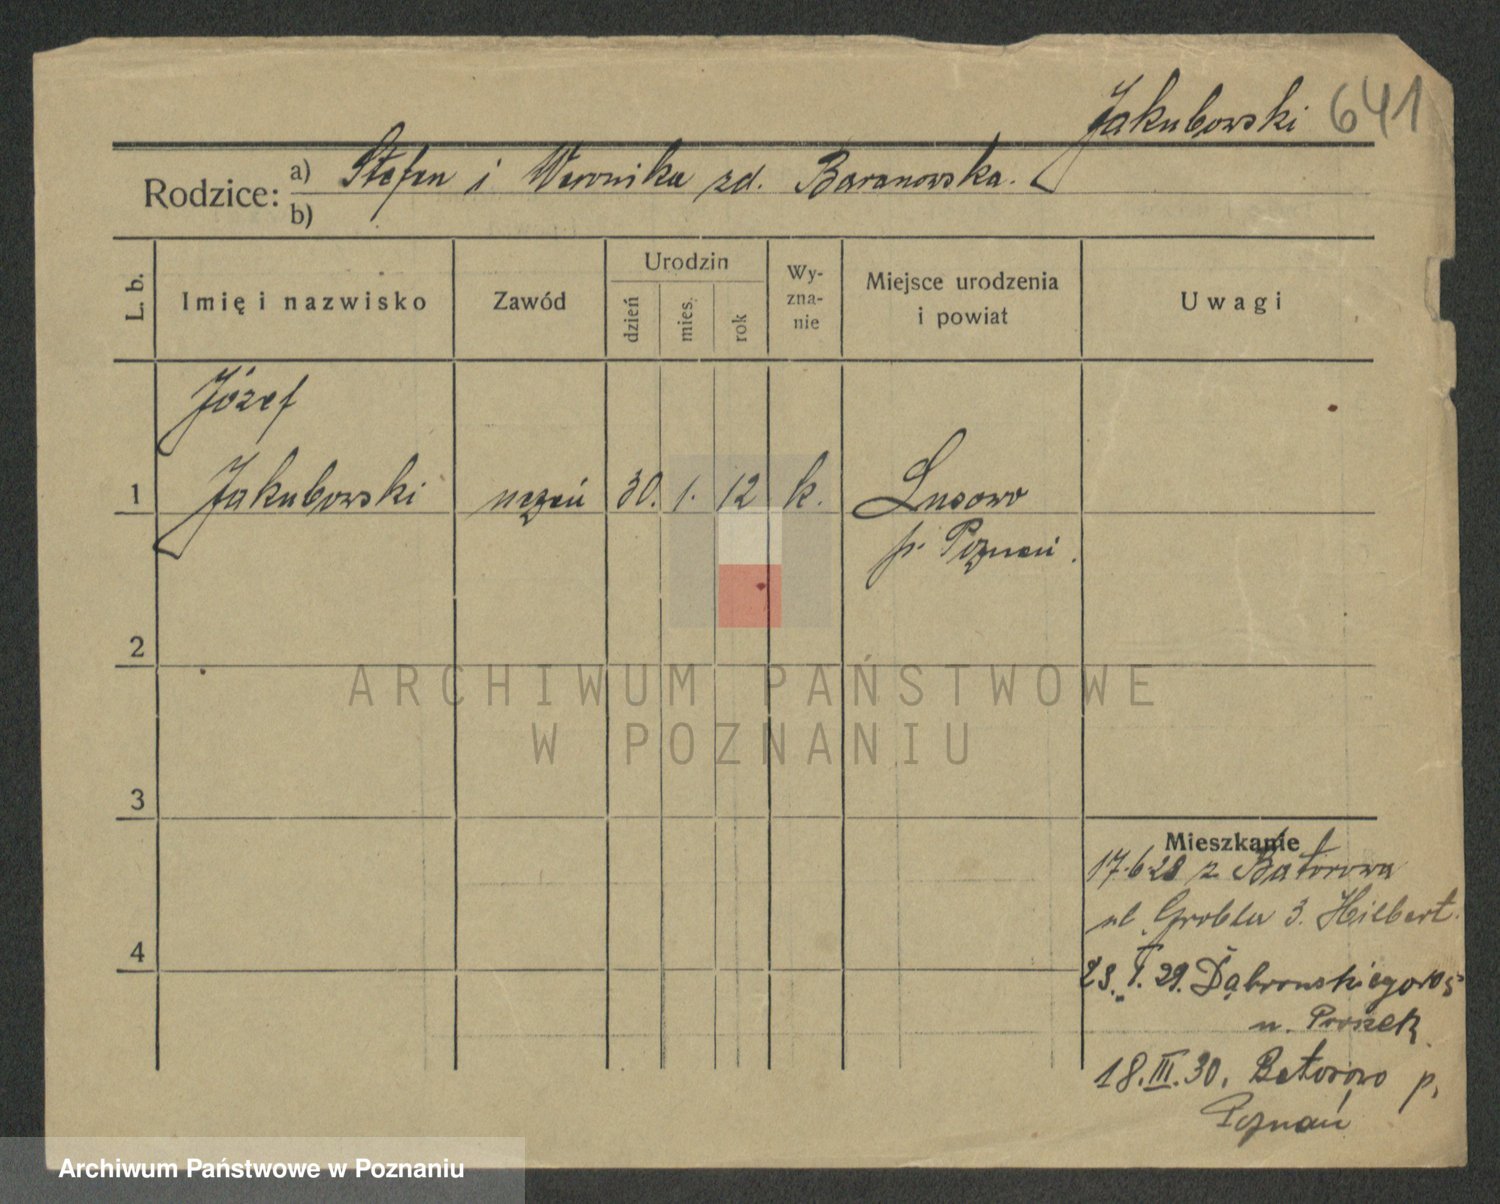 Jakubowski 641
Rodzice: a) Stefan i Weronika zd. Baranowska.
b)
L. b. Imię i nazwisko Zawód Urodzin dzień mies. rok Wy-zna-nie Miejsce urodzenia i powiat Uwagi
Józef
1 Jakubowski uczeń 30. 1. 12 k. Lusowo
p. Poznań.
2
ARCHIWUM PAŃSTWOWE
W POZNANIU
3
Mieszkanie
17.6.28 z Batorowa
ul. Grobla 3. Hilbert.
4
23. I. 29. Dąbrowskiego
u.
18. III. 30. Batorowo p.
Poznań
Archiwum Państwowe w Poznaniu